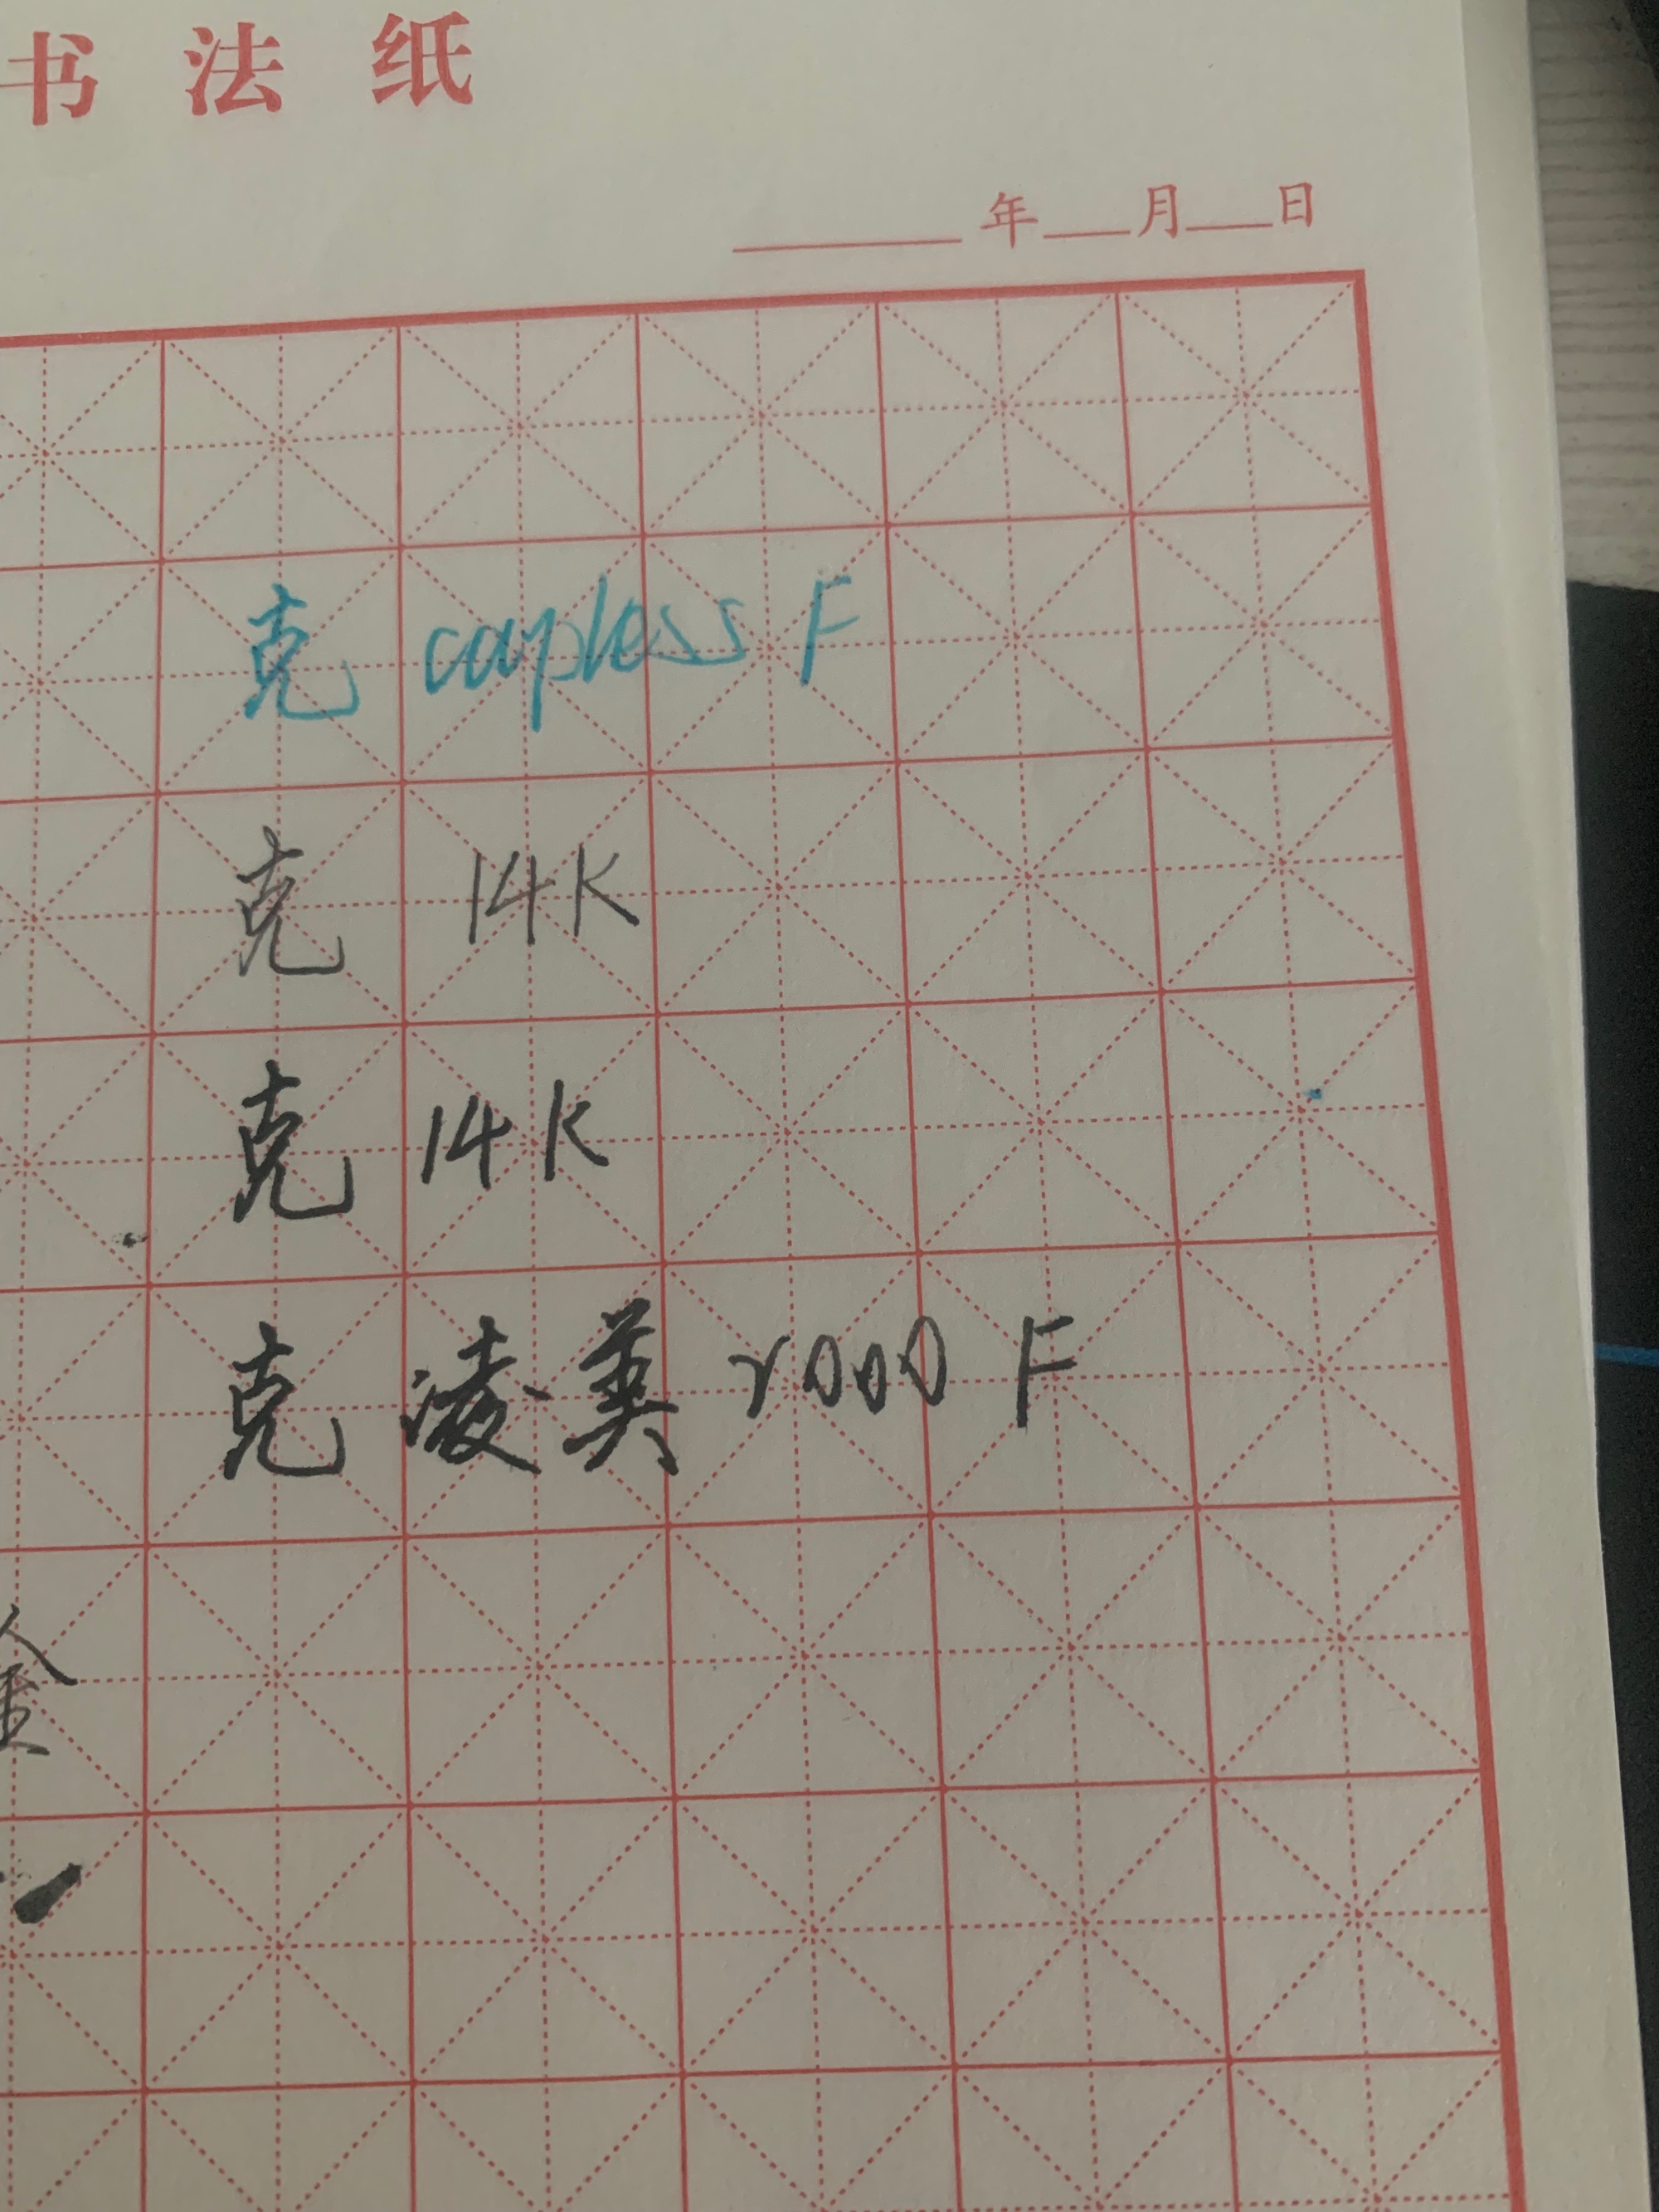 书法纸
年 月 日
克 capless F
克 14K
克 14K
克 凌美 2000 F
金